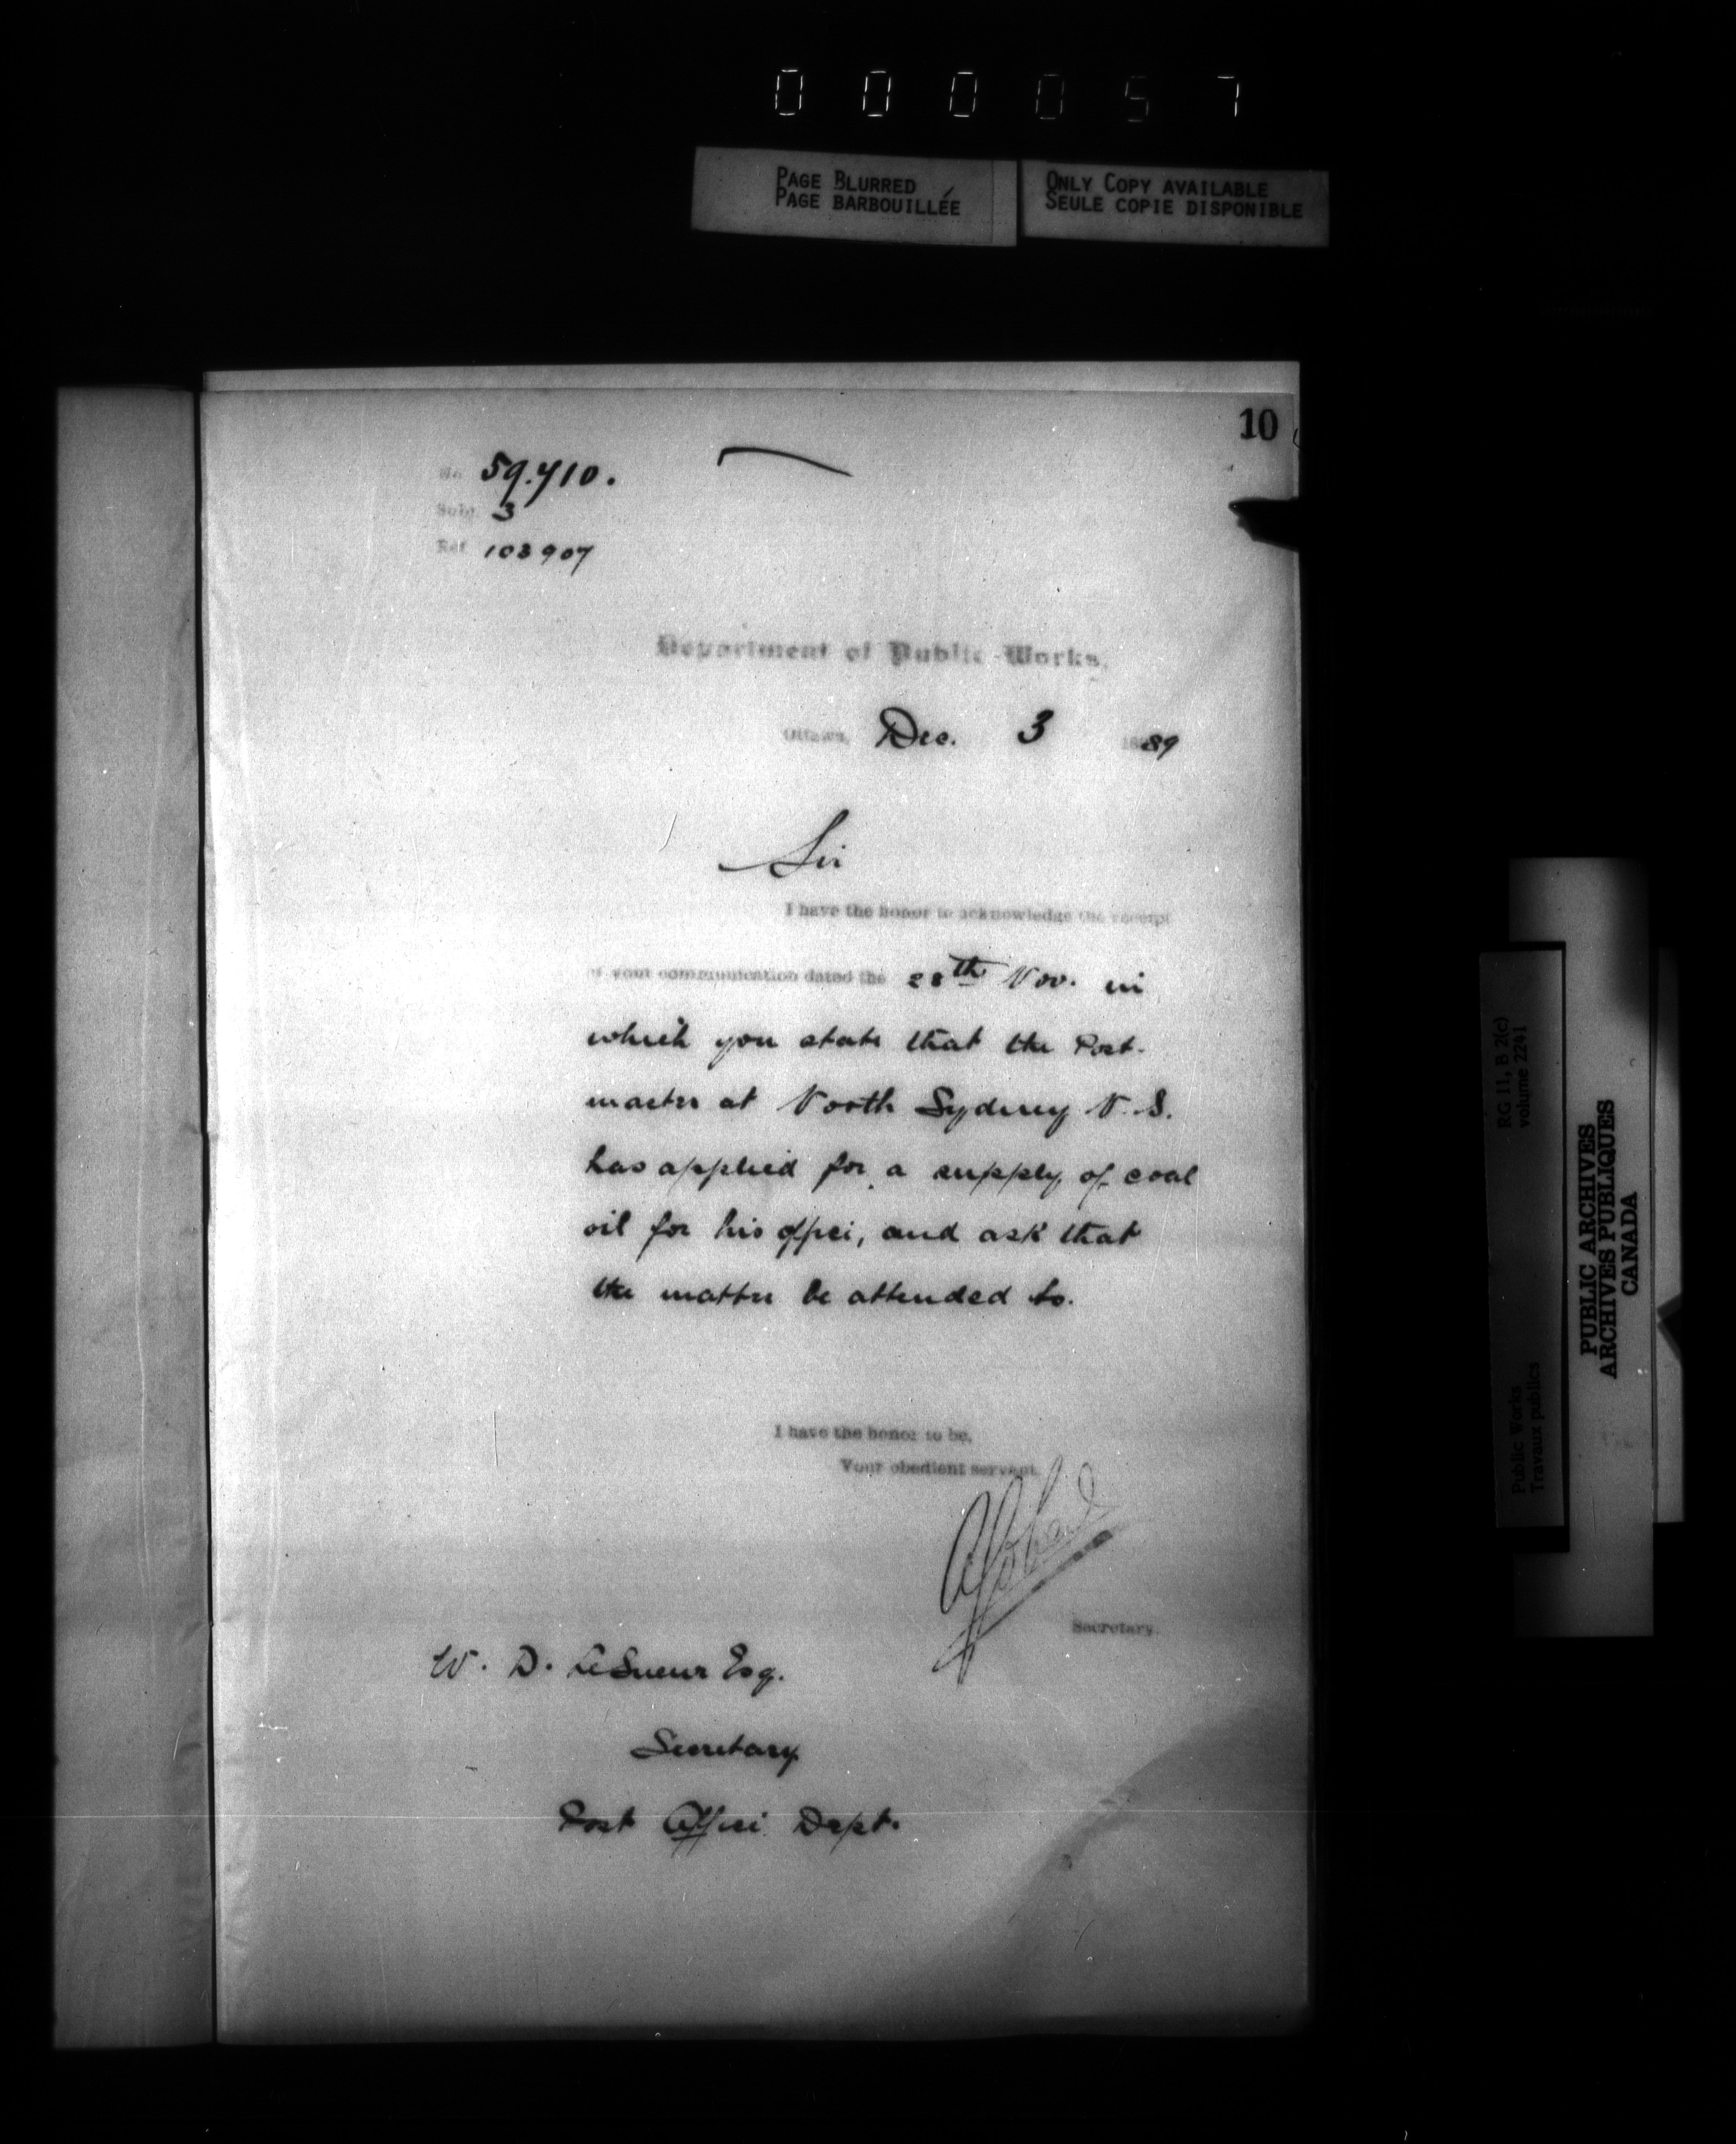 000057
PAGE BLURRED
PAGE BARBOUILLÉE
ONLY COPY AVAILABLE
SEULE COPIE DISPONIBLE
10
No. 59.710.
Subj. 3
Ref. 103907
Department of Public Works.
Ottawa, Dec. 3 1889
Sir
I have the honor to acknowledge the receipt
of your communication dated the 28th Nov. in
which you state that the Post-
master at North Sydney N.S.
has applied for a supply of coal
oil for his office, and ask that
the matter be attended to.
I have the honor to be,
Your obedient servant,
Secretary.
W. D. LeSueur Esq.
Secretary
Post Office Dept.
RG 11, B 2(c)
volume 2241
Public Works
Travaux publics
PUBLIC ARCHIVES
ARCHIVES PUBLIQUES
CANADA